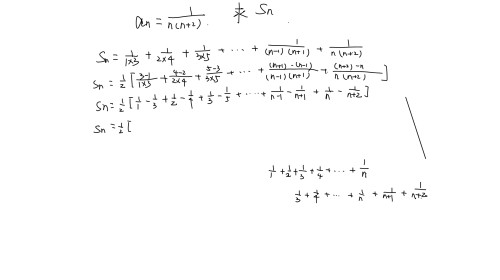 an = 1/(n(n+2)) 求 Sn.
Sn = 1/(1×3) + 1/(2×4) + 1/(3×5) + ⋯ + 1/((n-1)(n+1)) + 1/(n(n+2))
Sn = 1/2 [ (3-1)/(1×3) + (4-2)/(2×4) + (5-3)/(3×5) + ⋯ + ((n+1)-(n-1))/((n-1)(n+1)) + ((n+2)-n)/(n(n+2)) ]
Sn = 1/2 [ 1/1 - 1/3 + 1/2 - 1/4 + 1/3 - 1/5 + ⋯ + 1/(n-1) - 1/(n+1) + 1/n - 1/(n+2) ]
Sn = 1/2 [
1/1 + 1/2 + 1/3 + 1/4 + ⋯ + 1/n
1/3 + 1/4 + ⋯ + 1/n + 1/(n+1) + 1/(n+2)